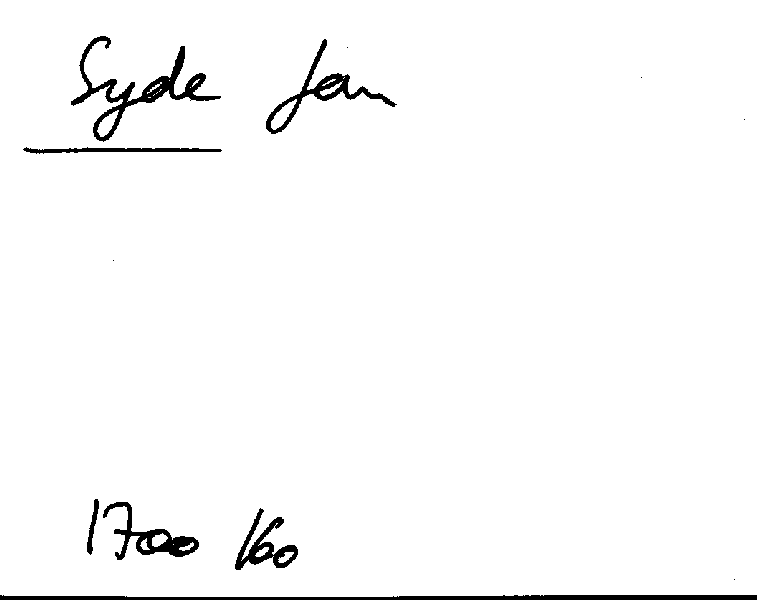 Syde Jan
1700 160